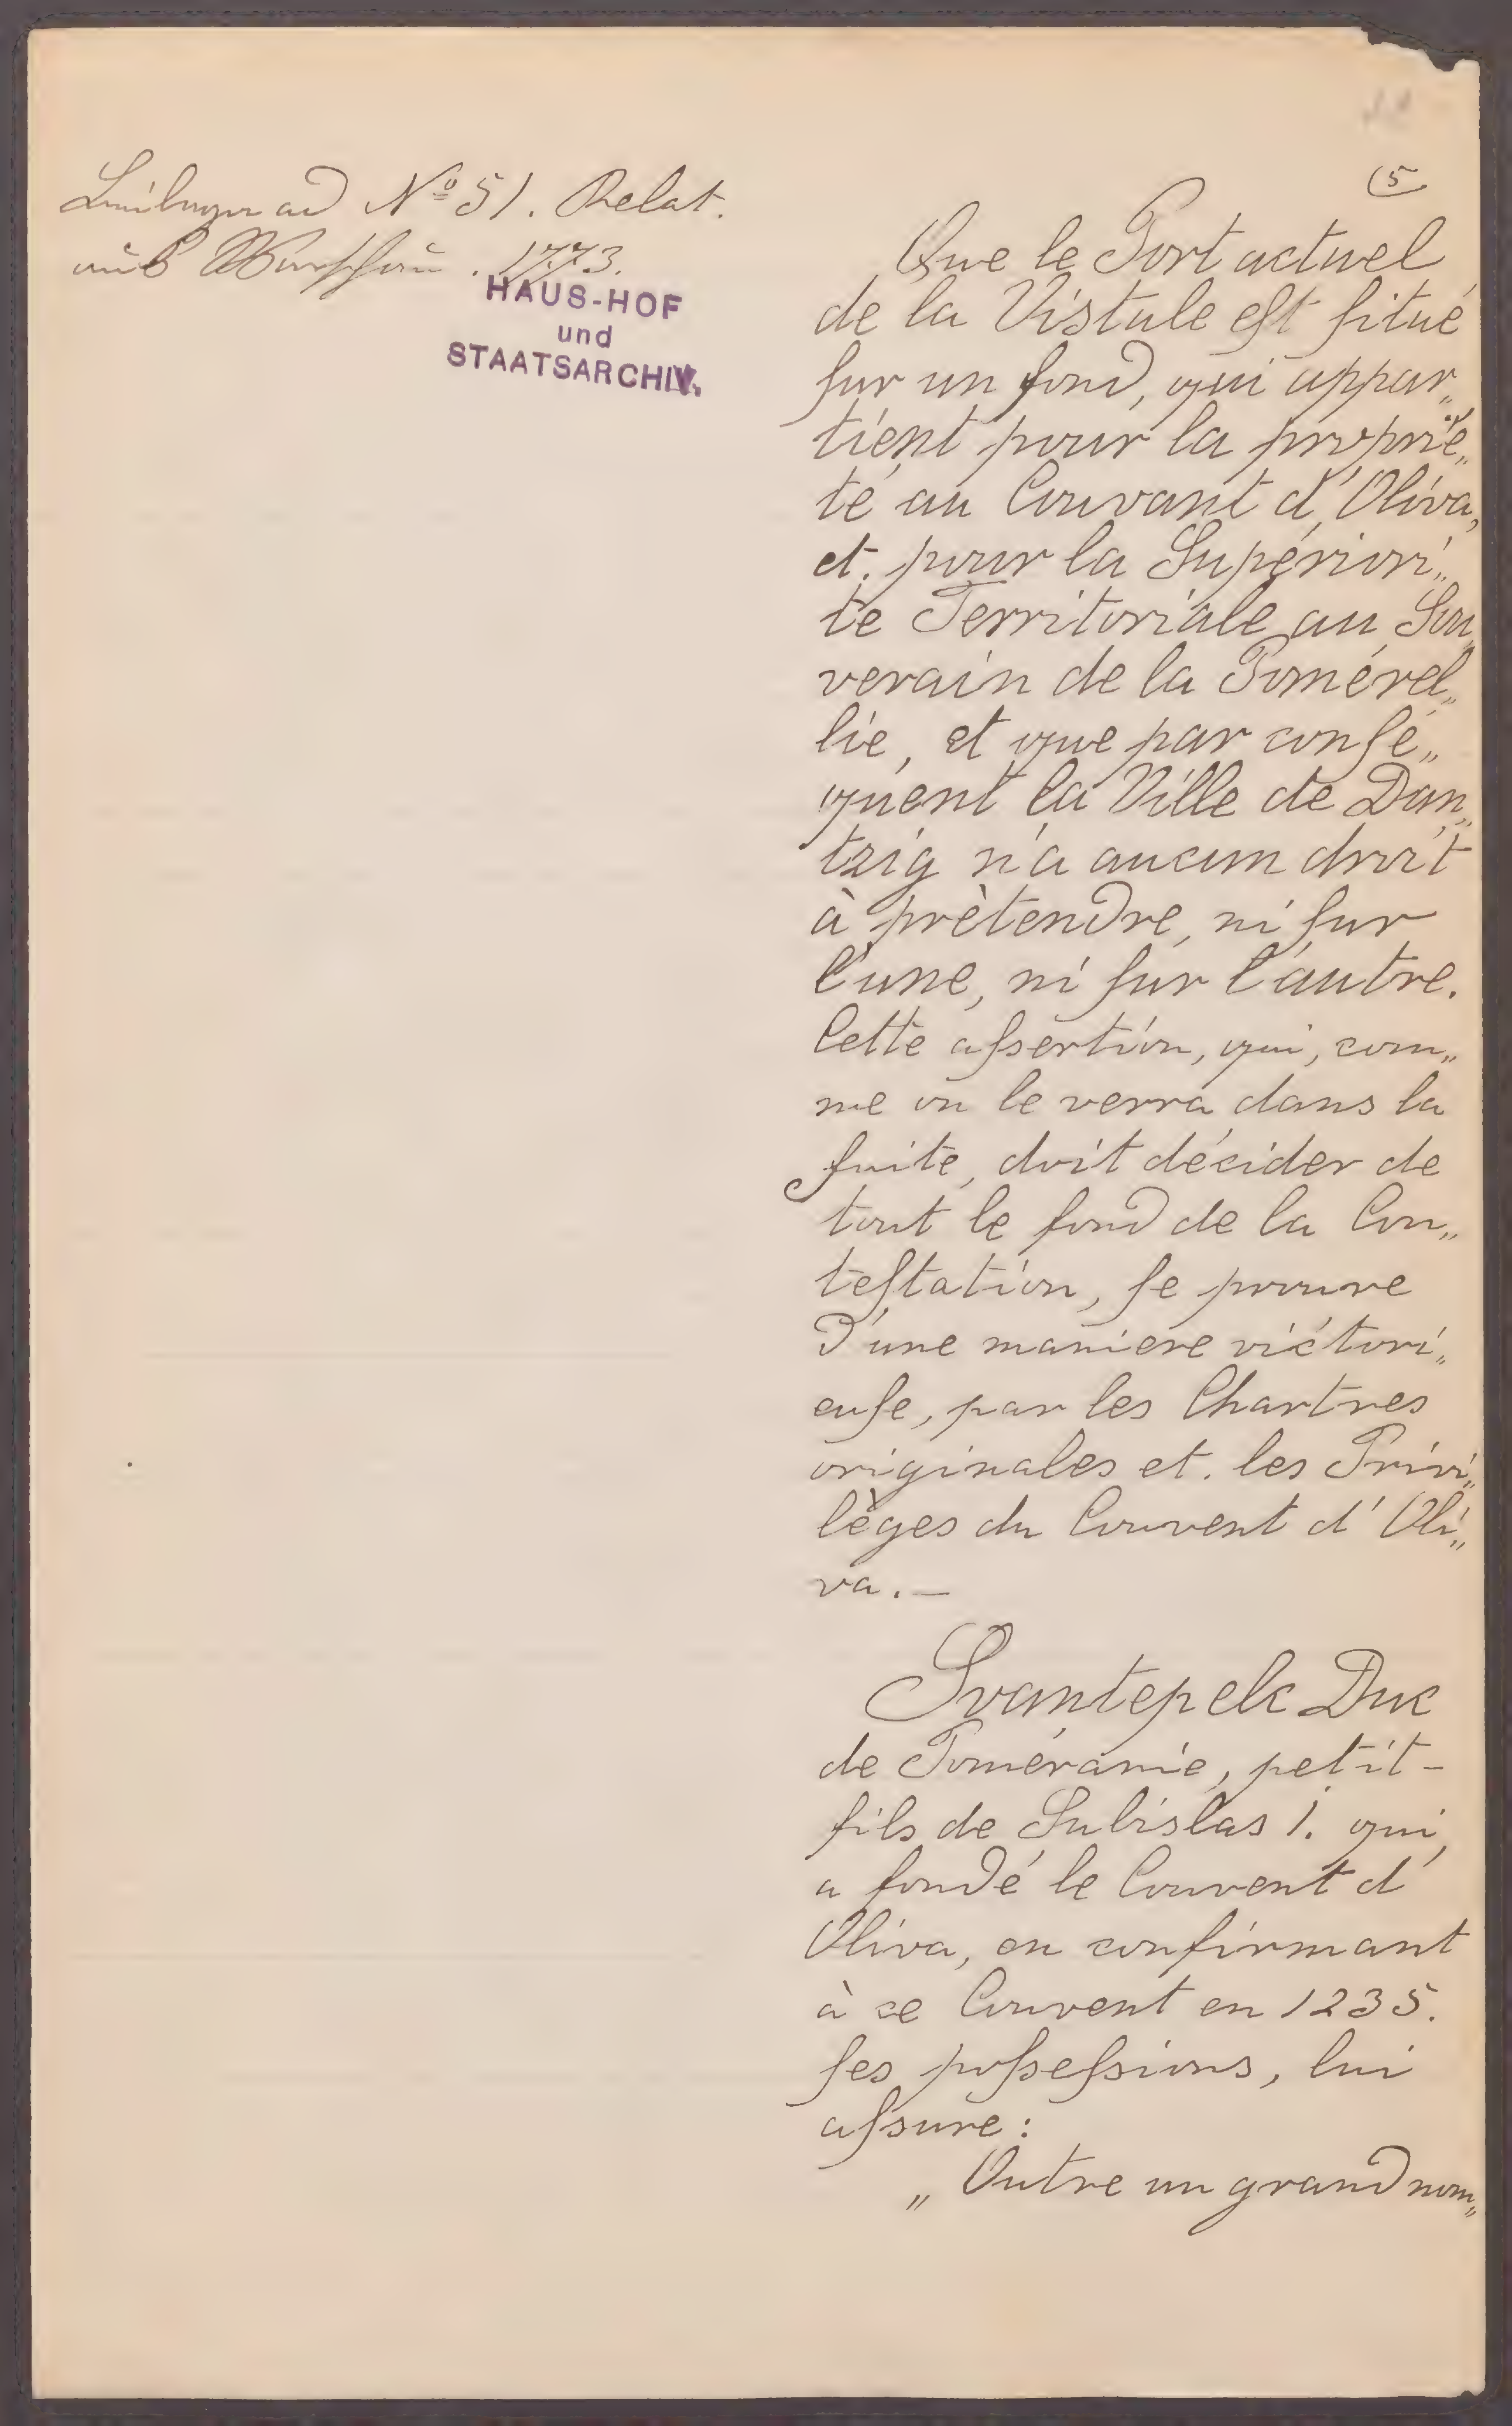 Beilagen ad Nº 51. Relat.
aus Warschau. 1773.
HAUS-HOF
und
STAATSARCHIV.
(5
Que le Port actuel
de la Vistule eſt ſitué
ſur un fond, qui appar„
tient pour la proprié„
té au Couvant d'Oliva,
et. pour la Supériori„
te Territoriale au Sou„
verain de la Pomérel„
lie, et que par conſé„
quent la Ville de Dan„
tzig n'a aucun droit
à prètendre, ni ſur
l'une, ni ſur l'autre.
Cette aſsertion, qui, com„
me on le verra dans la
ſuite, doit décider de
tout le fond de la Con„
teſtation, ſe prouve
d'une maniere victori„
euſe, par les Chartres
originales et. les Privi„
lèges du Couvent d'Oli„
va.—
Svantepelc Duc
de Poméranie, petit-
fils de Subislas 1. qui
a fondé le Couvent d'
Oliva, en confirmant
à ce Couvent en 1235.
ſes poſseſsions, lui
aſsure:
„Outre un grand nom„